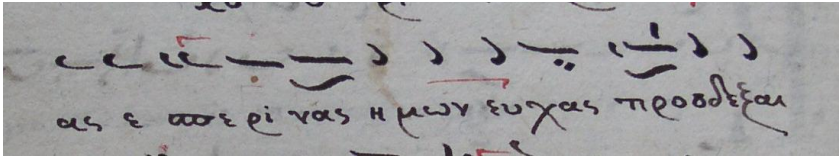 ας ε σπερι νας ημων ευχας προσδεξαι